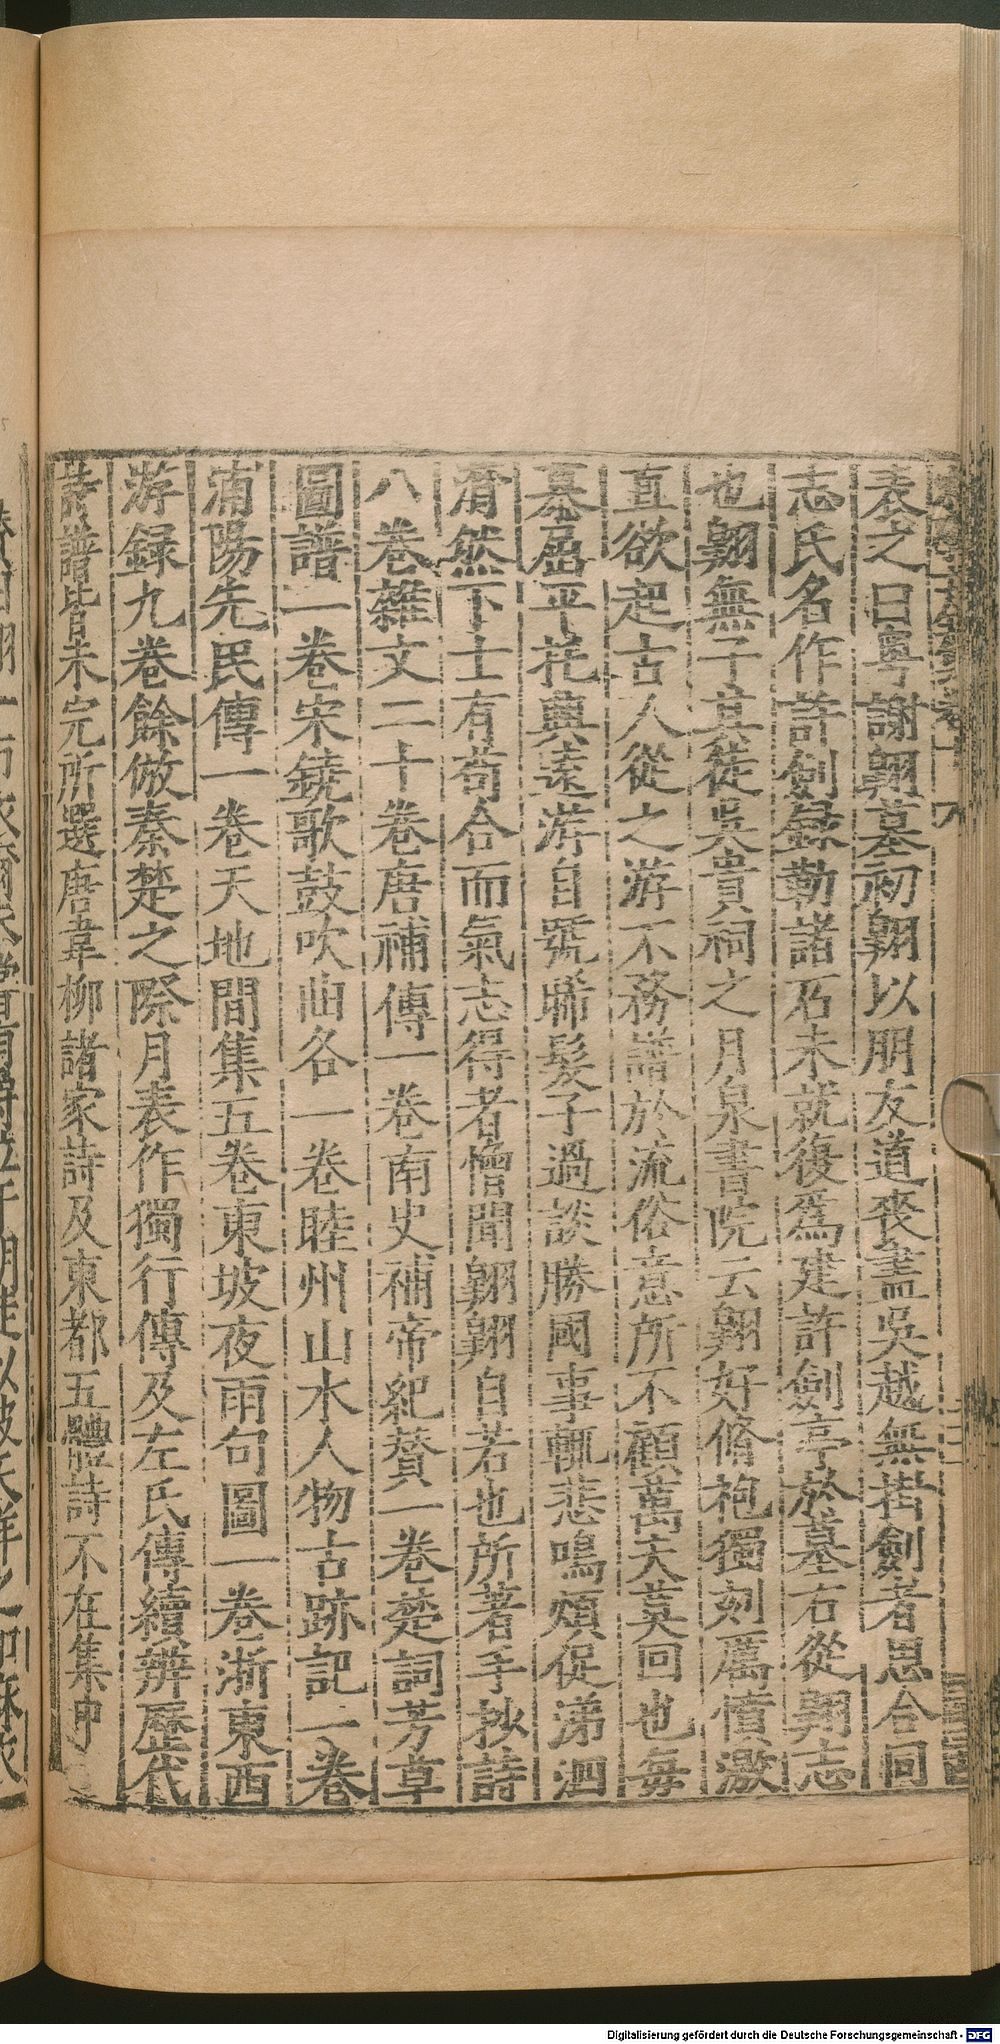 表之曰粤謝翺墓初翺以朋友道喪盡吳越無掛劍者思合同
志氏名作許劍録勒諸石未就復爲建許劍亭於墓右從翺志
也翺無子其徒吳貴祠之月泉書院云翺好脩袍獨刻厲憤激
直欲起古人從之游不務諧於流俗意所不顧萬夫莫回也每
慕屈平托興遠游自號晞髮子過談勝國事輒悲鳴煩促涕泗
潸然下士有苟合而氣志得者憎聞翺翺自若也所著手抄詩
八卷雜文二十卷唐補傳一卷南史補帝紀賛一卷楚詞芳草
圖譜一卷宋鐃歌鼓吹曲各一卷睦州山水人物古跡記一卷
浦陽先民傳一卷天地間集五卷東坡夜雨句圖一卷浙東西
游録九卷餘倣秦楚之際月表作獨行傳及左氏傳續辨歷代
詩譜皆未完所選唐韋柳諸家詩及東都五體詩不在集中
Digitalisierung gefördert durch die Deutsche Forschungsgemeinschaft - DFG